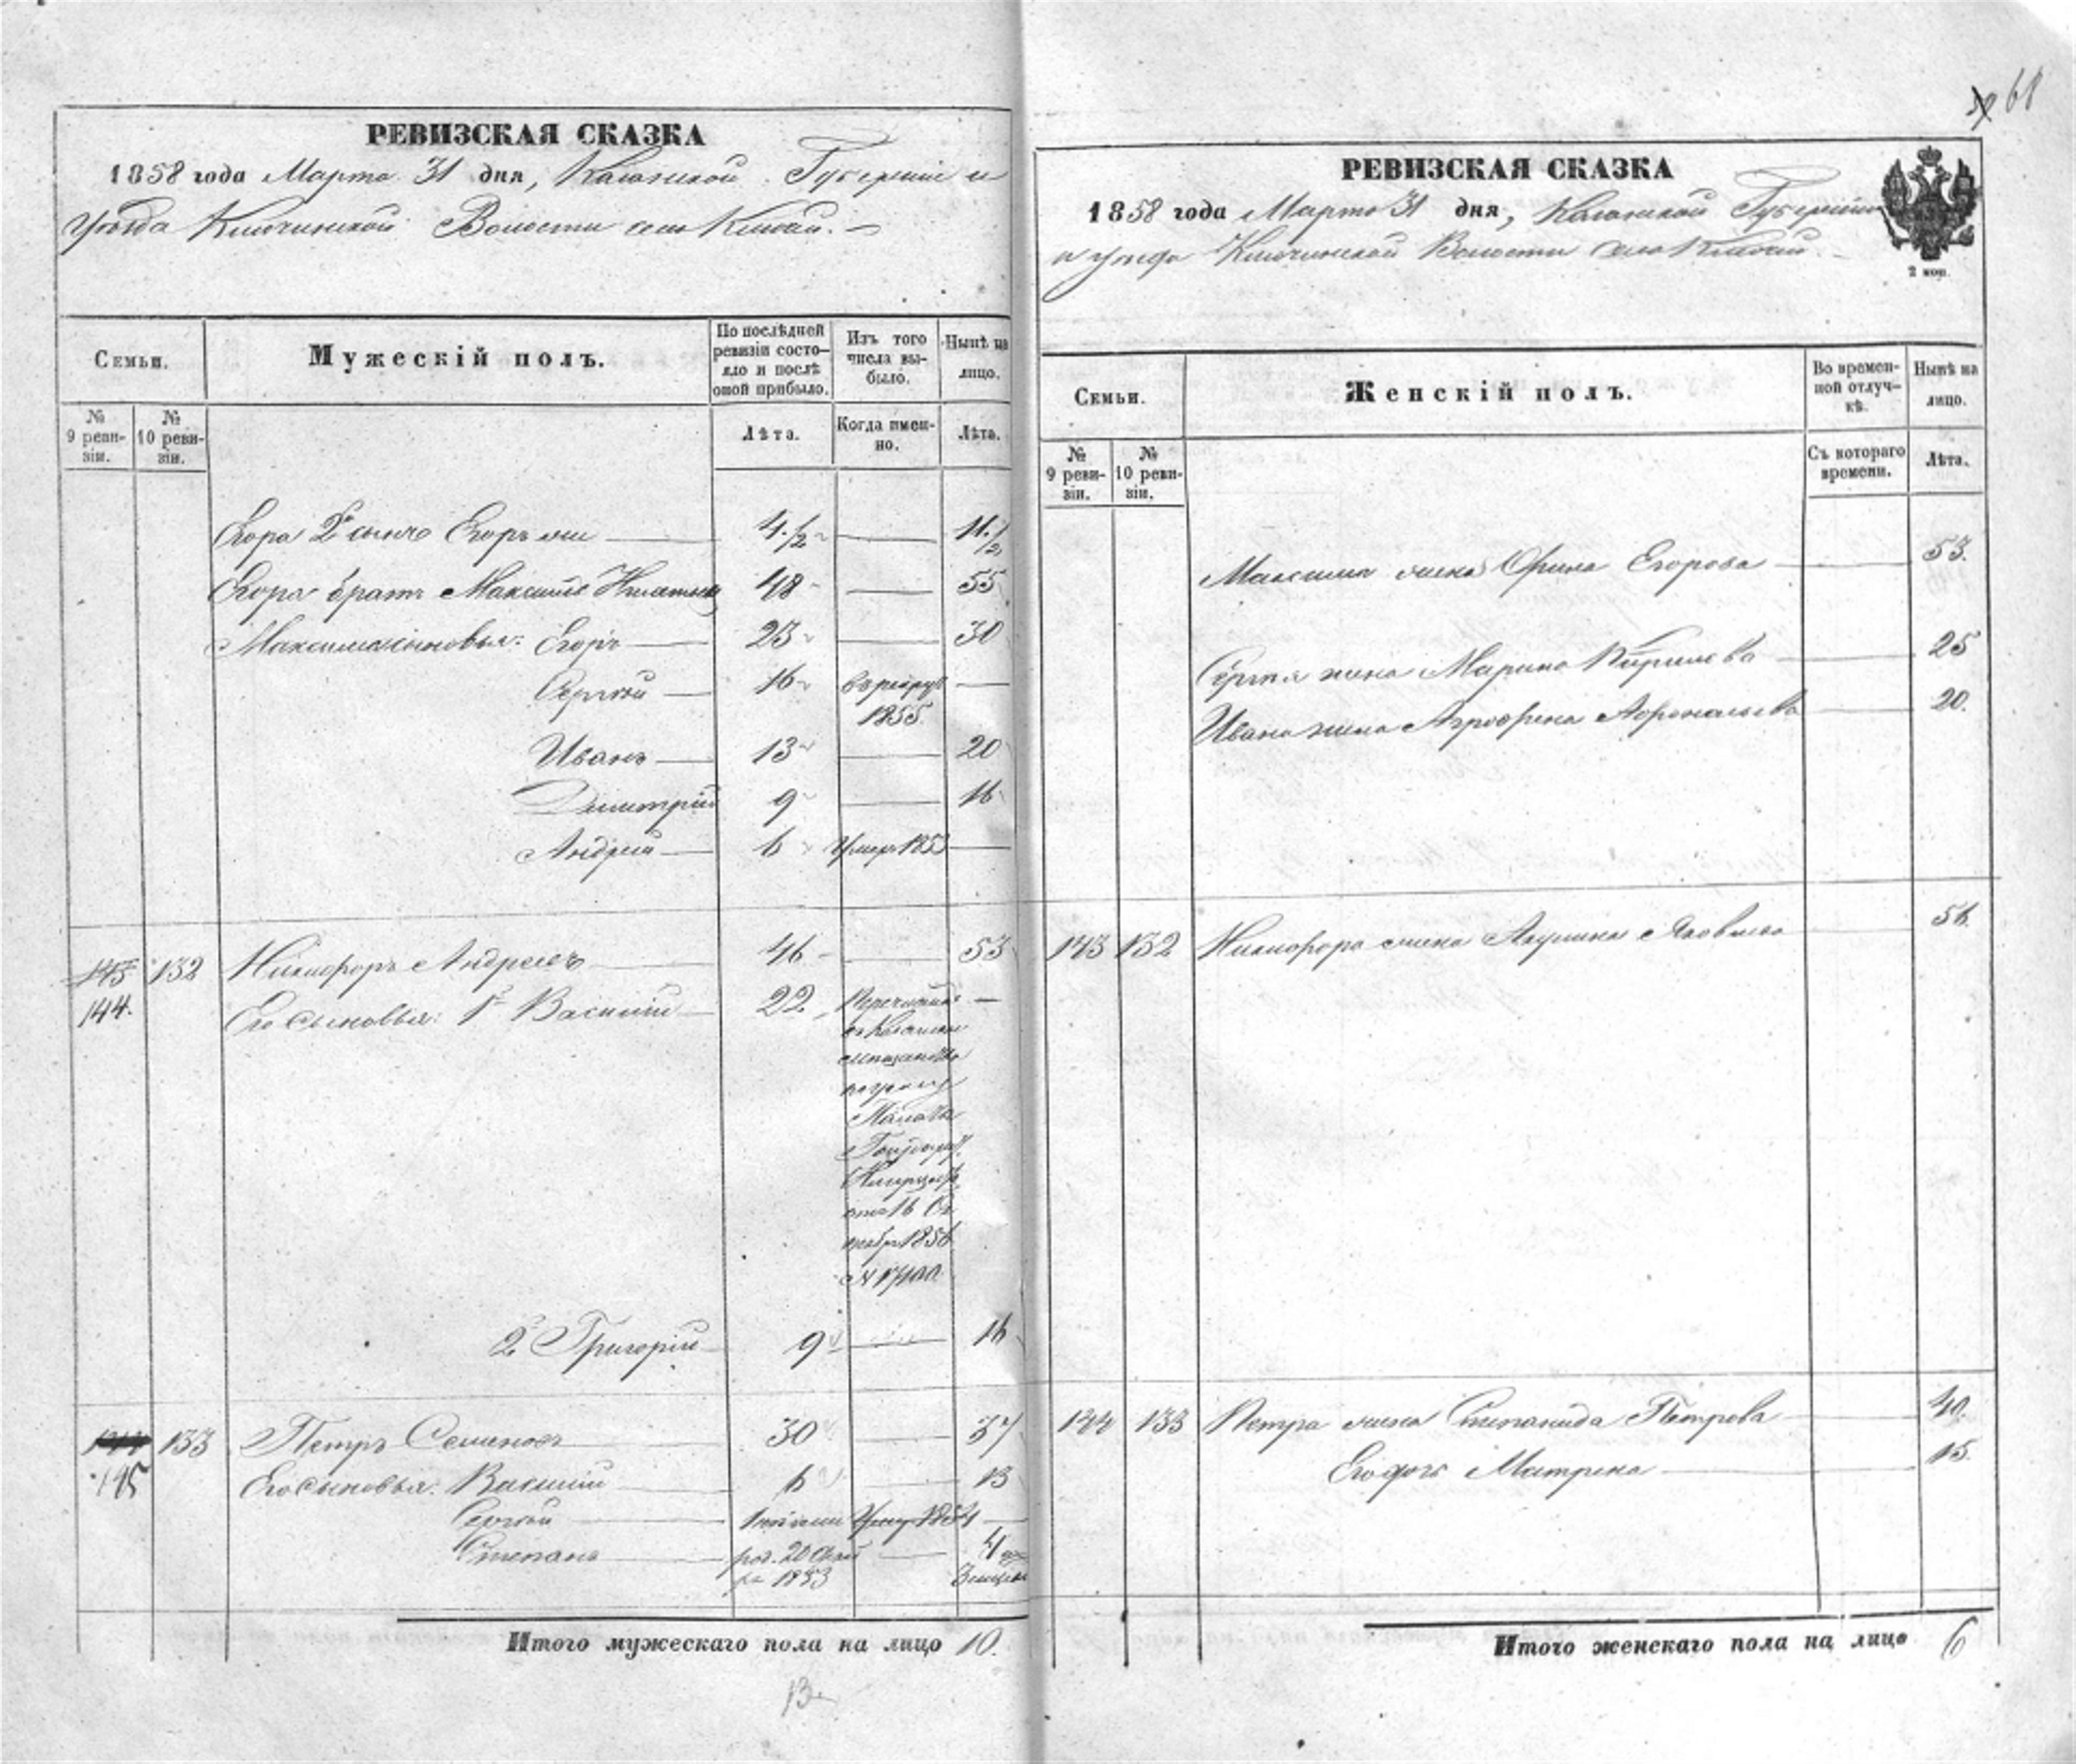 68
РЕВИЗСКАЯ СКАЗКА
1858 года Марта 31 дня, Казанской Губерніи и
уѣзда Ключинской Волости села
Семьи.
Мужескій полъ.
По послѣдней ревизіи состояло и послѣ оной прибыло.
Изъ того числа выбыло.
Нынѣ на лицо.
№ 9 ревизіи.
№ 10 ревизіи.
Лѣта.
Когда именно.
Лѣта.
Егора 2 сынъ Егоръ 4 1/2 11 1/2
Егора братъ Максимъ Игнатьевъ 48 55
Максима сыновья: Егоръ 23 30
Сергѣй 16 въ рекруты
1855.
Иванъ 13 20
Димитрій 9 16
Андрей 6 Умеръ 1853
143 132 Никифоръ Андреевъ 46 53
144. Его сыновья: 1й Василій 22 Перечисленъ
въ Казанское
мѣщанство
по указу
Палаты
Государ.
Имущес.
отъ 16 Ок
тября 1856
2й Григорій 9 16
133 Петръ Семеновъ 30 37
145 Его сыновья: Василій 6 13
Сергѣй Умеръ 1854
Степанъ род. 20 4
1853
Итого мужескаго пола на лицо 10.
13
РЕВИЗСКАЯ СКАЗКА
2 коп.
1858 года Марта 31 дня, Казанской Губерніи
и уѣзда Ключинской Волости села
Семьи.
Женскій полъ.
Во временной отлучкѣ.
Нынѣ на лицо.
№ 9 ревизіи.
№ 10 ревизіи.
Съ котораго времени.
Лѣта.
Максима жена Орина Егорова 53.
Сергѣя жена Марина Кирилова 25
Ивана жена Агрофена Афонасьева 20.
143 132 Никифора жена Акулина Яковлева 56.
144 133 Петра жена Степанида Петрова 40.
Его дочь Матрена 15.
Итого женскаго пола на лицо 6